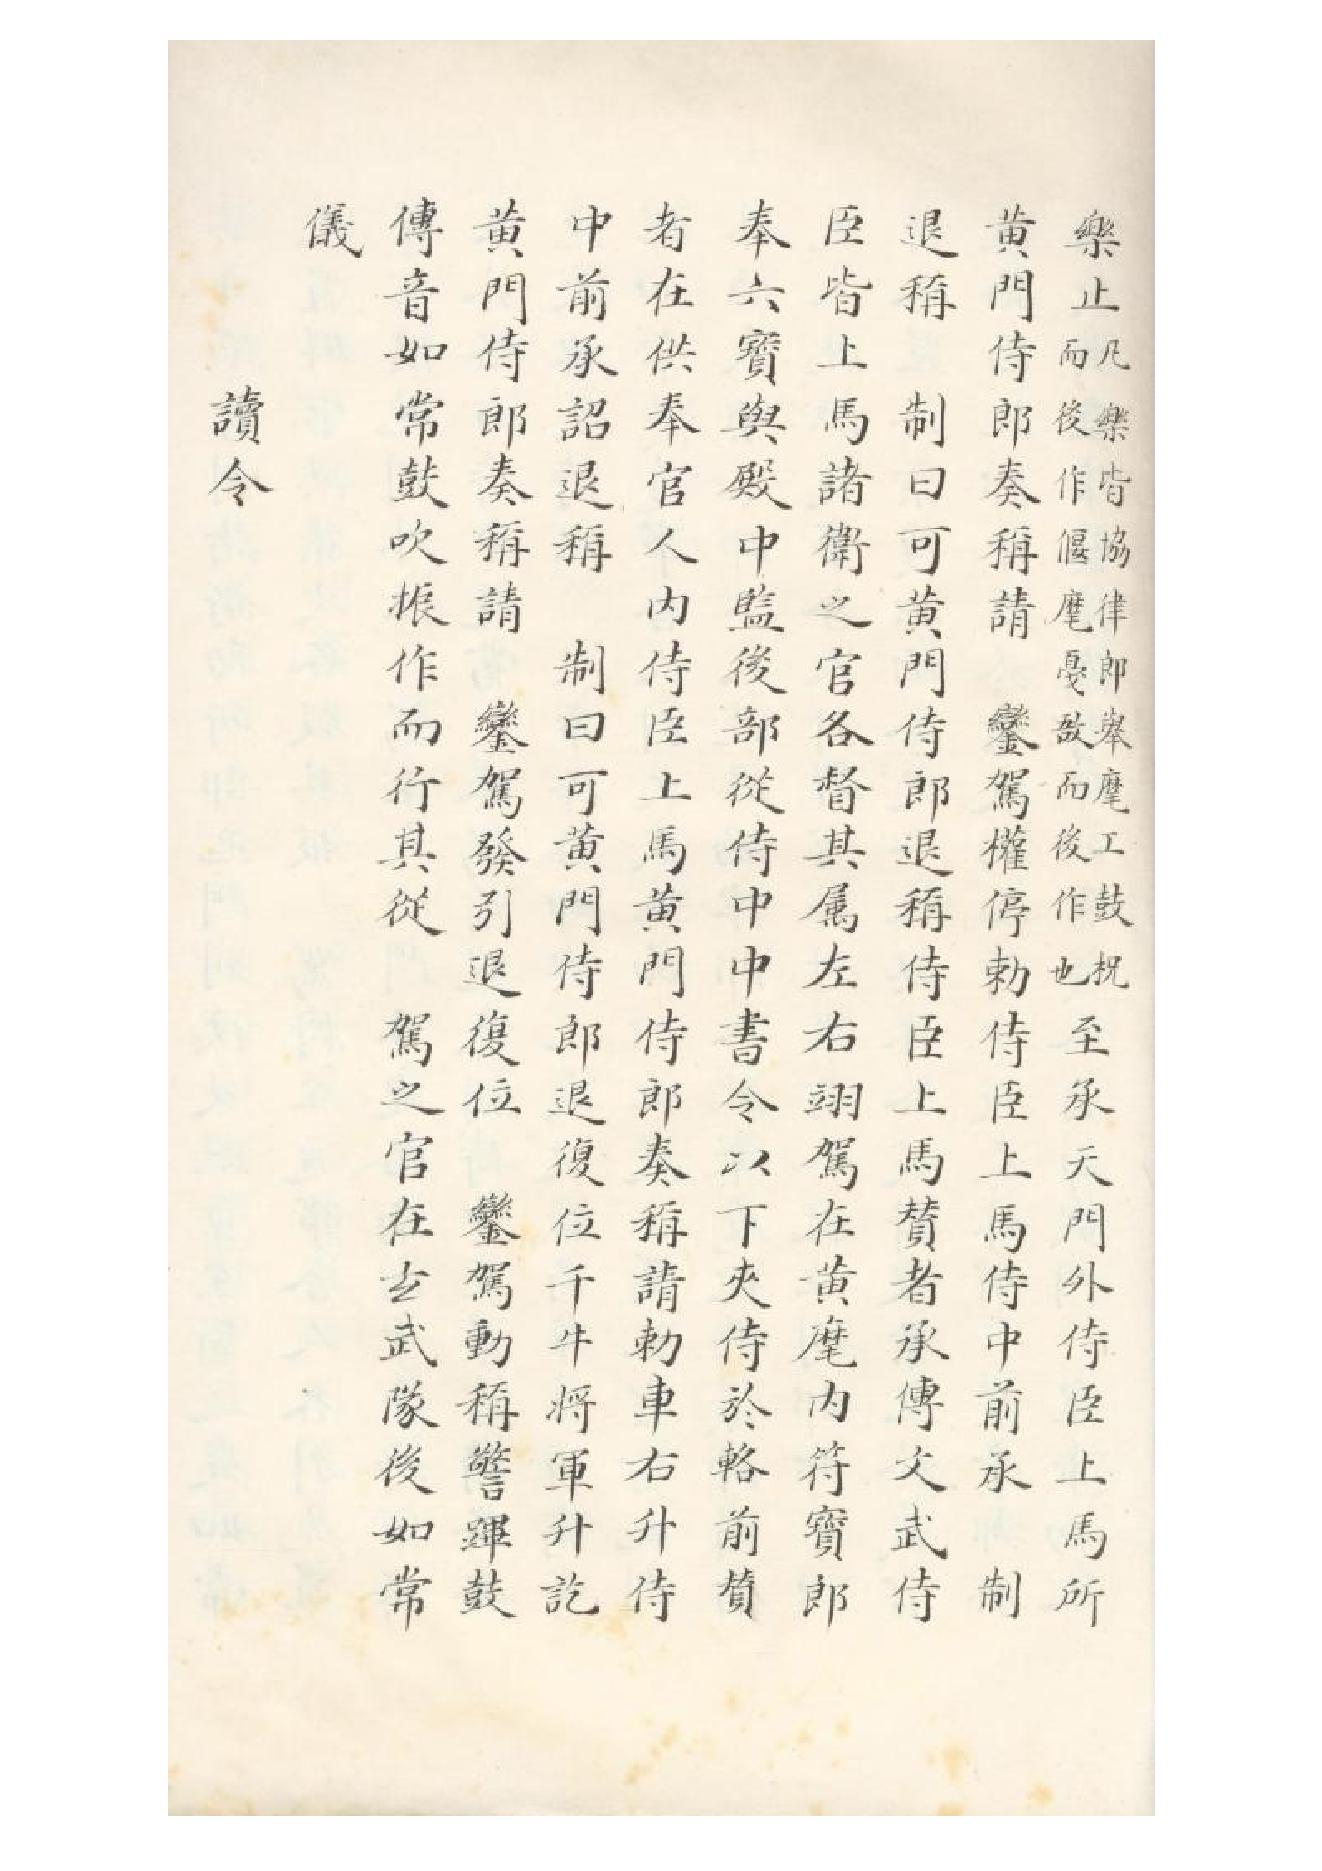 樂止凡樂皆協律郎舉麾工鼓柷而後作偃麾戞敔而後作也至承天門外侍臣上馬所
黄門侍郎奏稱請 鑾駕權停勅侍臣上馬侍中前承 制
退稱 制曰可黄門侍郎退稱侍臣上馬賛者承傳文武侍
臣皆上馬諸衛之官各督其属左右翊駕在黄麾内符寳郎
奉六寳與殿中監後部從侍中中書令以下夾侍於輅前賛
者在供奉官人内侍臣上馬黄門侍郎奏稱請勅車右升侍
中前承詔退稱 制曰可黄門侍郎退復位千牛將軍升訖
黄門侍郎奏稱請 鑾駕發引退復位 鑾駕動稱警蹕鼓
傳音如常鼓吹振作而行其從 駕之官在玄武隊後如常
儀
讀令